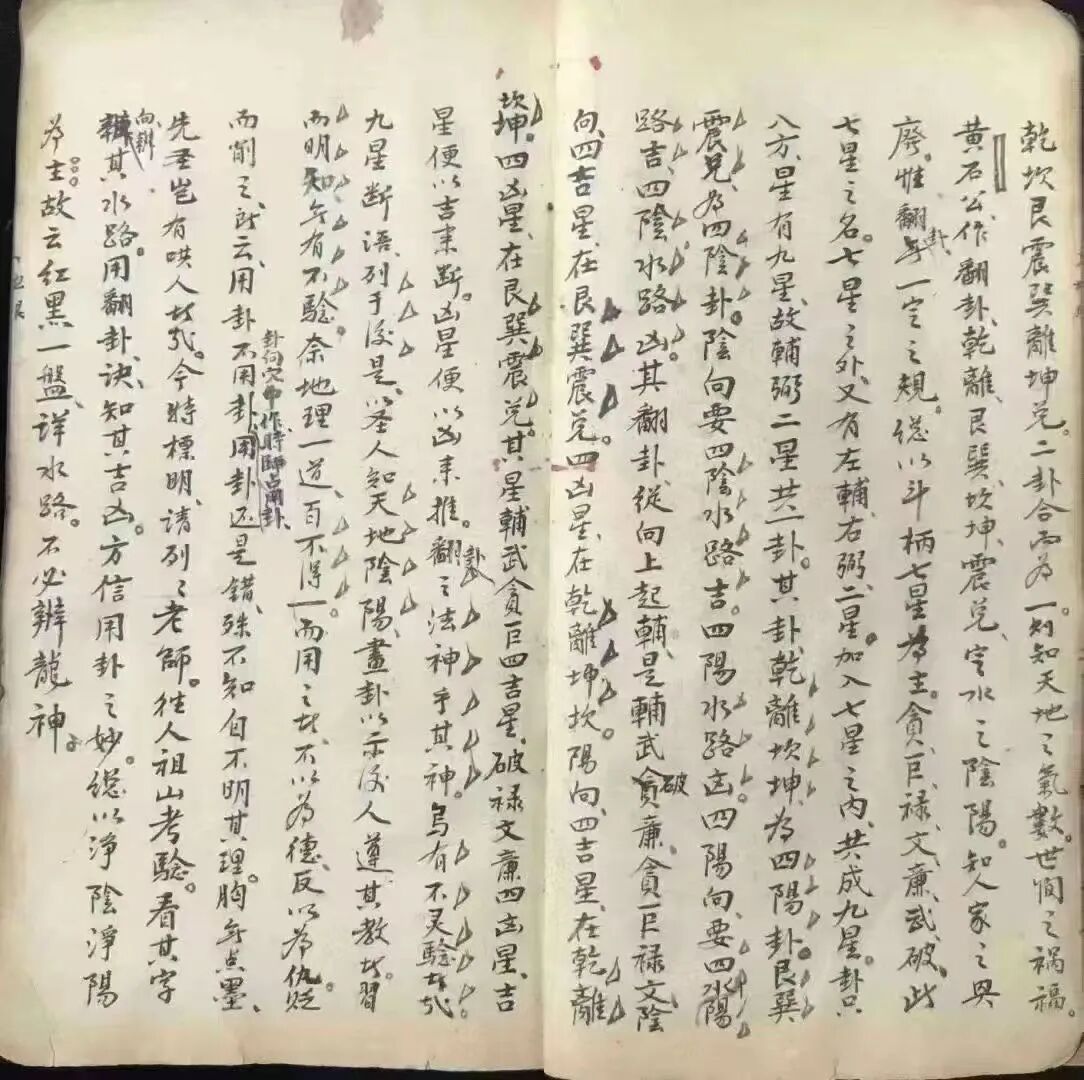 乾坎艮震巽離坤兑。二卦合而為一。則知天地之氣數。世间之禍福。
黄石公作翻卦、乾離、艮巽、坎坤、震兑、定水之陰陽。知人家之興
廢。惟翻卦一定之規。総以斗柄七星為主。貪巨、禄、文、廉、武、破。此
七星之名。七星之外、又有左輔、右弼、二星。加入七星之内、共成九星。卦只
八方、星有九星、故輔弼二星共一卦。其卦、乾離坎坤、為四陽卦。艮巽
震兑、為四陰卦。陰向要四陰水路吉。四陽水路凶。四陽向、要四水陽
路吉、四陰水路凶。其翻卦、從向上起輔、是輔武破廉、貪巨禄文陰
向、四吉星、在艮巽震兑。四凶星、在乾離坤坎。陽向、四吉星、在乾離
坎坤。四凶星、在艮巽震兑。其星輔武貪巨四吉星、破禄文廉四凶星、吉
星便以吉来断。凶星便以凶来推。翻卦之法神乎其神。烏有不灵驗者哉
九星断语、列于後是。以圣人知天地陰陽、畫卦以示後人遵其教者。習
而明知無有不驗。奈地理一道、百不得一。而用之者、不以為德、反以為仇貶
而削之、既云、用卦不用卦、用卦还是錯、殊不知自不明其理。胸無点墨、
卦向穴中作時師占用卦
先圣岂有哄人者哉。今特標明、请列之老師。往人祖山考驗。看其字
向、辨其水路。用翻卦訣、知其吉凶。方信用卦之妙。総以淨陰淨陽
為主。故云紅黑一盤、详水路。不必辨龍神